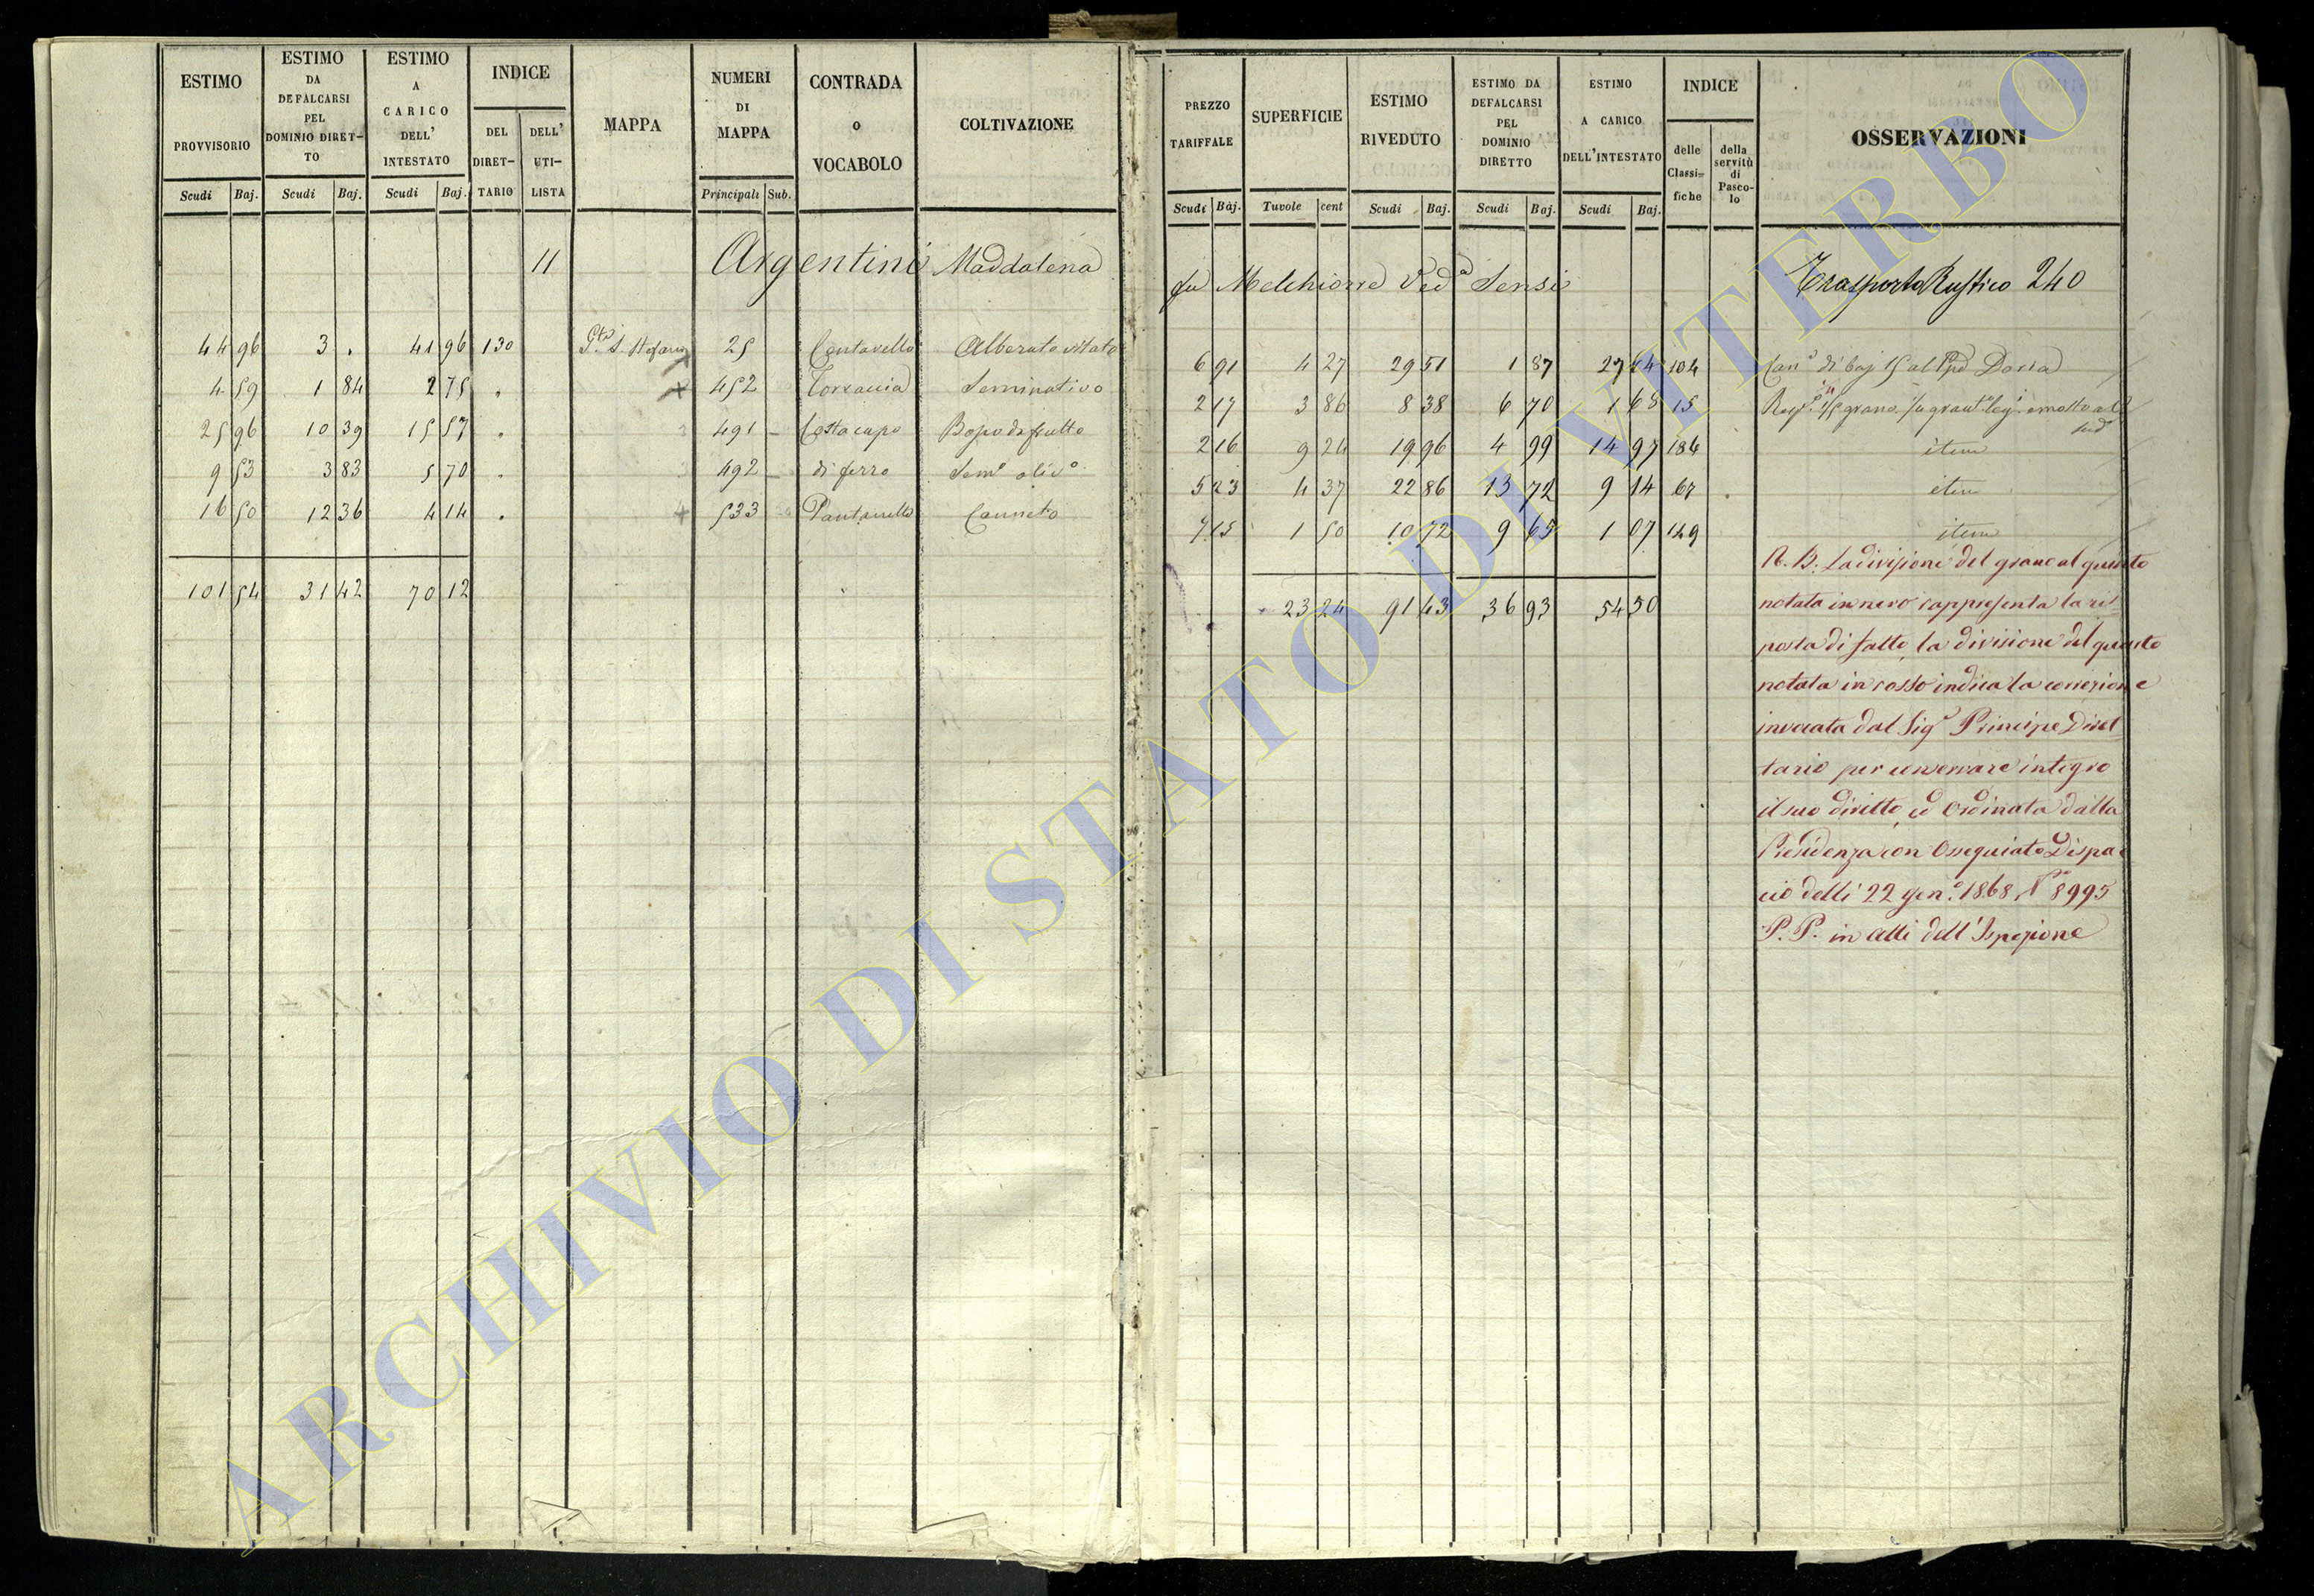 ESTIMO PROVVISORIO
Scudi Baj.
ESTIMO DA DEFALCARSI PEL DOMINIO DIRET-TO
Scudi Baj.
ESTIMO A CARICO DELL' INTESTATO
Scudi Baj.
INDICE
DEL DIRET-TARIO
DELL' UTI-LISTA
MAPPA
NUMERI DI MAPPA
Principali Sub.
CONTRADA O VOCABOLO
COLTIVAZIONE
PREZZO TARIFFALE
Scudi Baj.
SUPERFICIE
Tavole cent
ESTIMO RIVEDUTO
Scudi Baj.
ESTIMO DA DEFALCARSI PEL DOMINIO DIRETTO
Scudi Baj.
ESTIMO A CARICO DELL'INTESTATO
Scudi Baj.
INDICE
delle Classi=fiche
della servitù di Pasco-lo
OSSERVAZIONI
11 Argentini Maddalena fu Melchiorre Ved.a Sensi Trasporto Rustico 240
44 96 3 . 41 96 130 S. Stefano 25 Cantavello Alberato vitato 6 91 4 27 29 51 1 87 27 64 104 Can.e di baj 15 al Ppe Doria
4 59 1 84 2 75 " 452 Torraccia Seminativo 2 17 3 86 8 38 6 70 1 68 15 1/5 grano
25 96 10 39 15 57 " 491 Costa capo Bosco da frutto 2 16 9 24 19 96 4 99 14 97 184 item
9 53 3 83 5 70 " 492 di ferro Sem.o oliv.o 5 23 4 37 22 86 13 72 9 14 67 item
16 50 12 36 4 14 " 533 Pantanello Canneto 7 15 1 50 10 72 9 65 1 07 129 item
101 54 31 42 70 12 23 24 91 43 36 93 54 50
N.B. La divisione del grano al quinto
notata in nero rappresenta la ris-
posta di fatto, la divisione del quinto
notata in rosso indica la correzione
invocata dal Sig.e Principe Diret-
tario per conservare integro
il suo diritto, ed Ordinata dalla
Presidenza con Ossequiato Dispac
cio delli 22 gen.o 1868 N.o 8995
P.P. in atti dell'Ispezione
ARCHIVIO DI STATO DI VITERBO